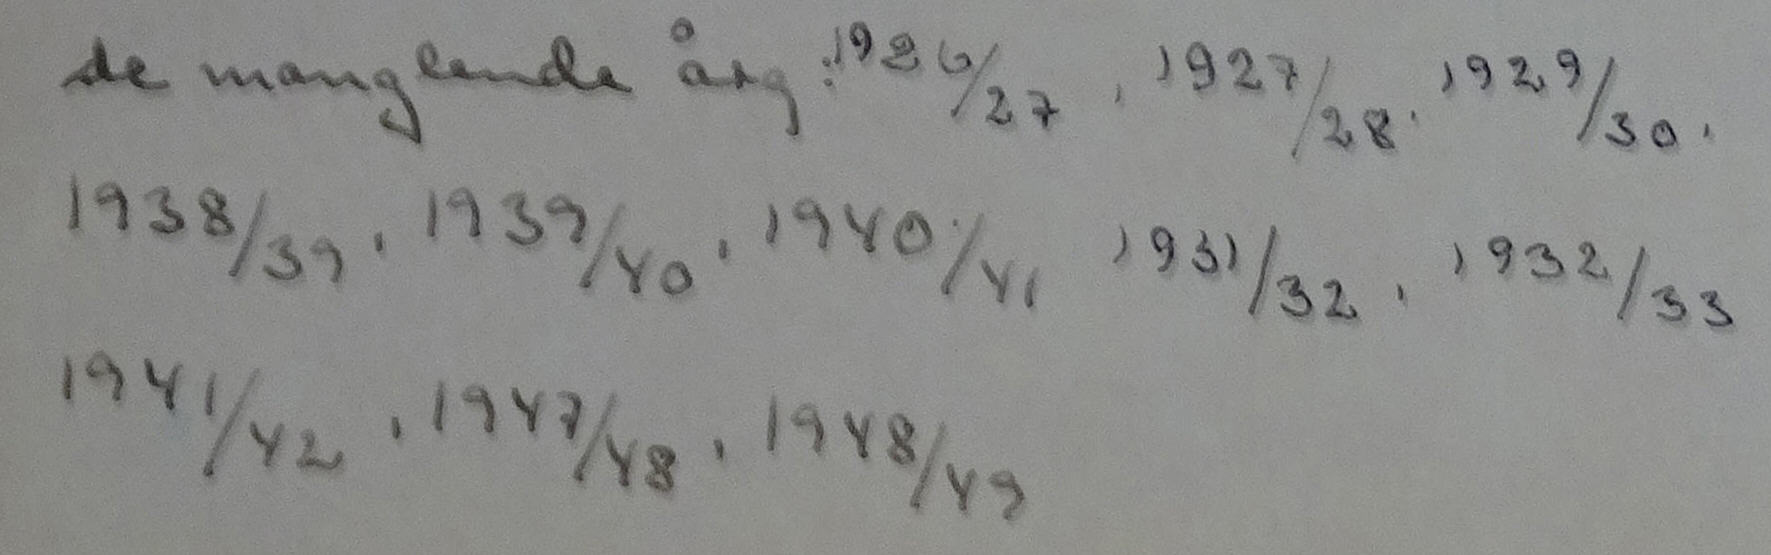 de manglende årg: 1926/27, 1927/28, 1929/30,
1938/39, 1939/40, 1940/41 1931/32, 1932/33
1941/42, 1947/48, 1948/49